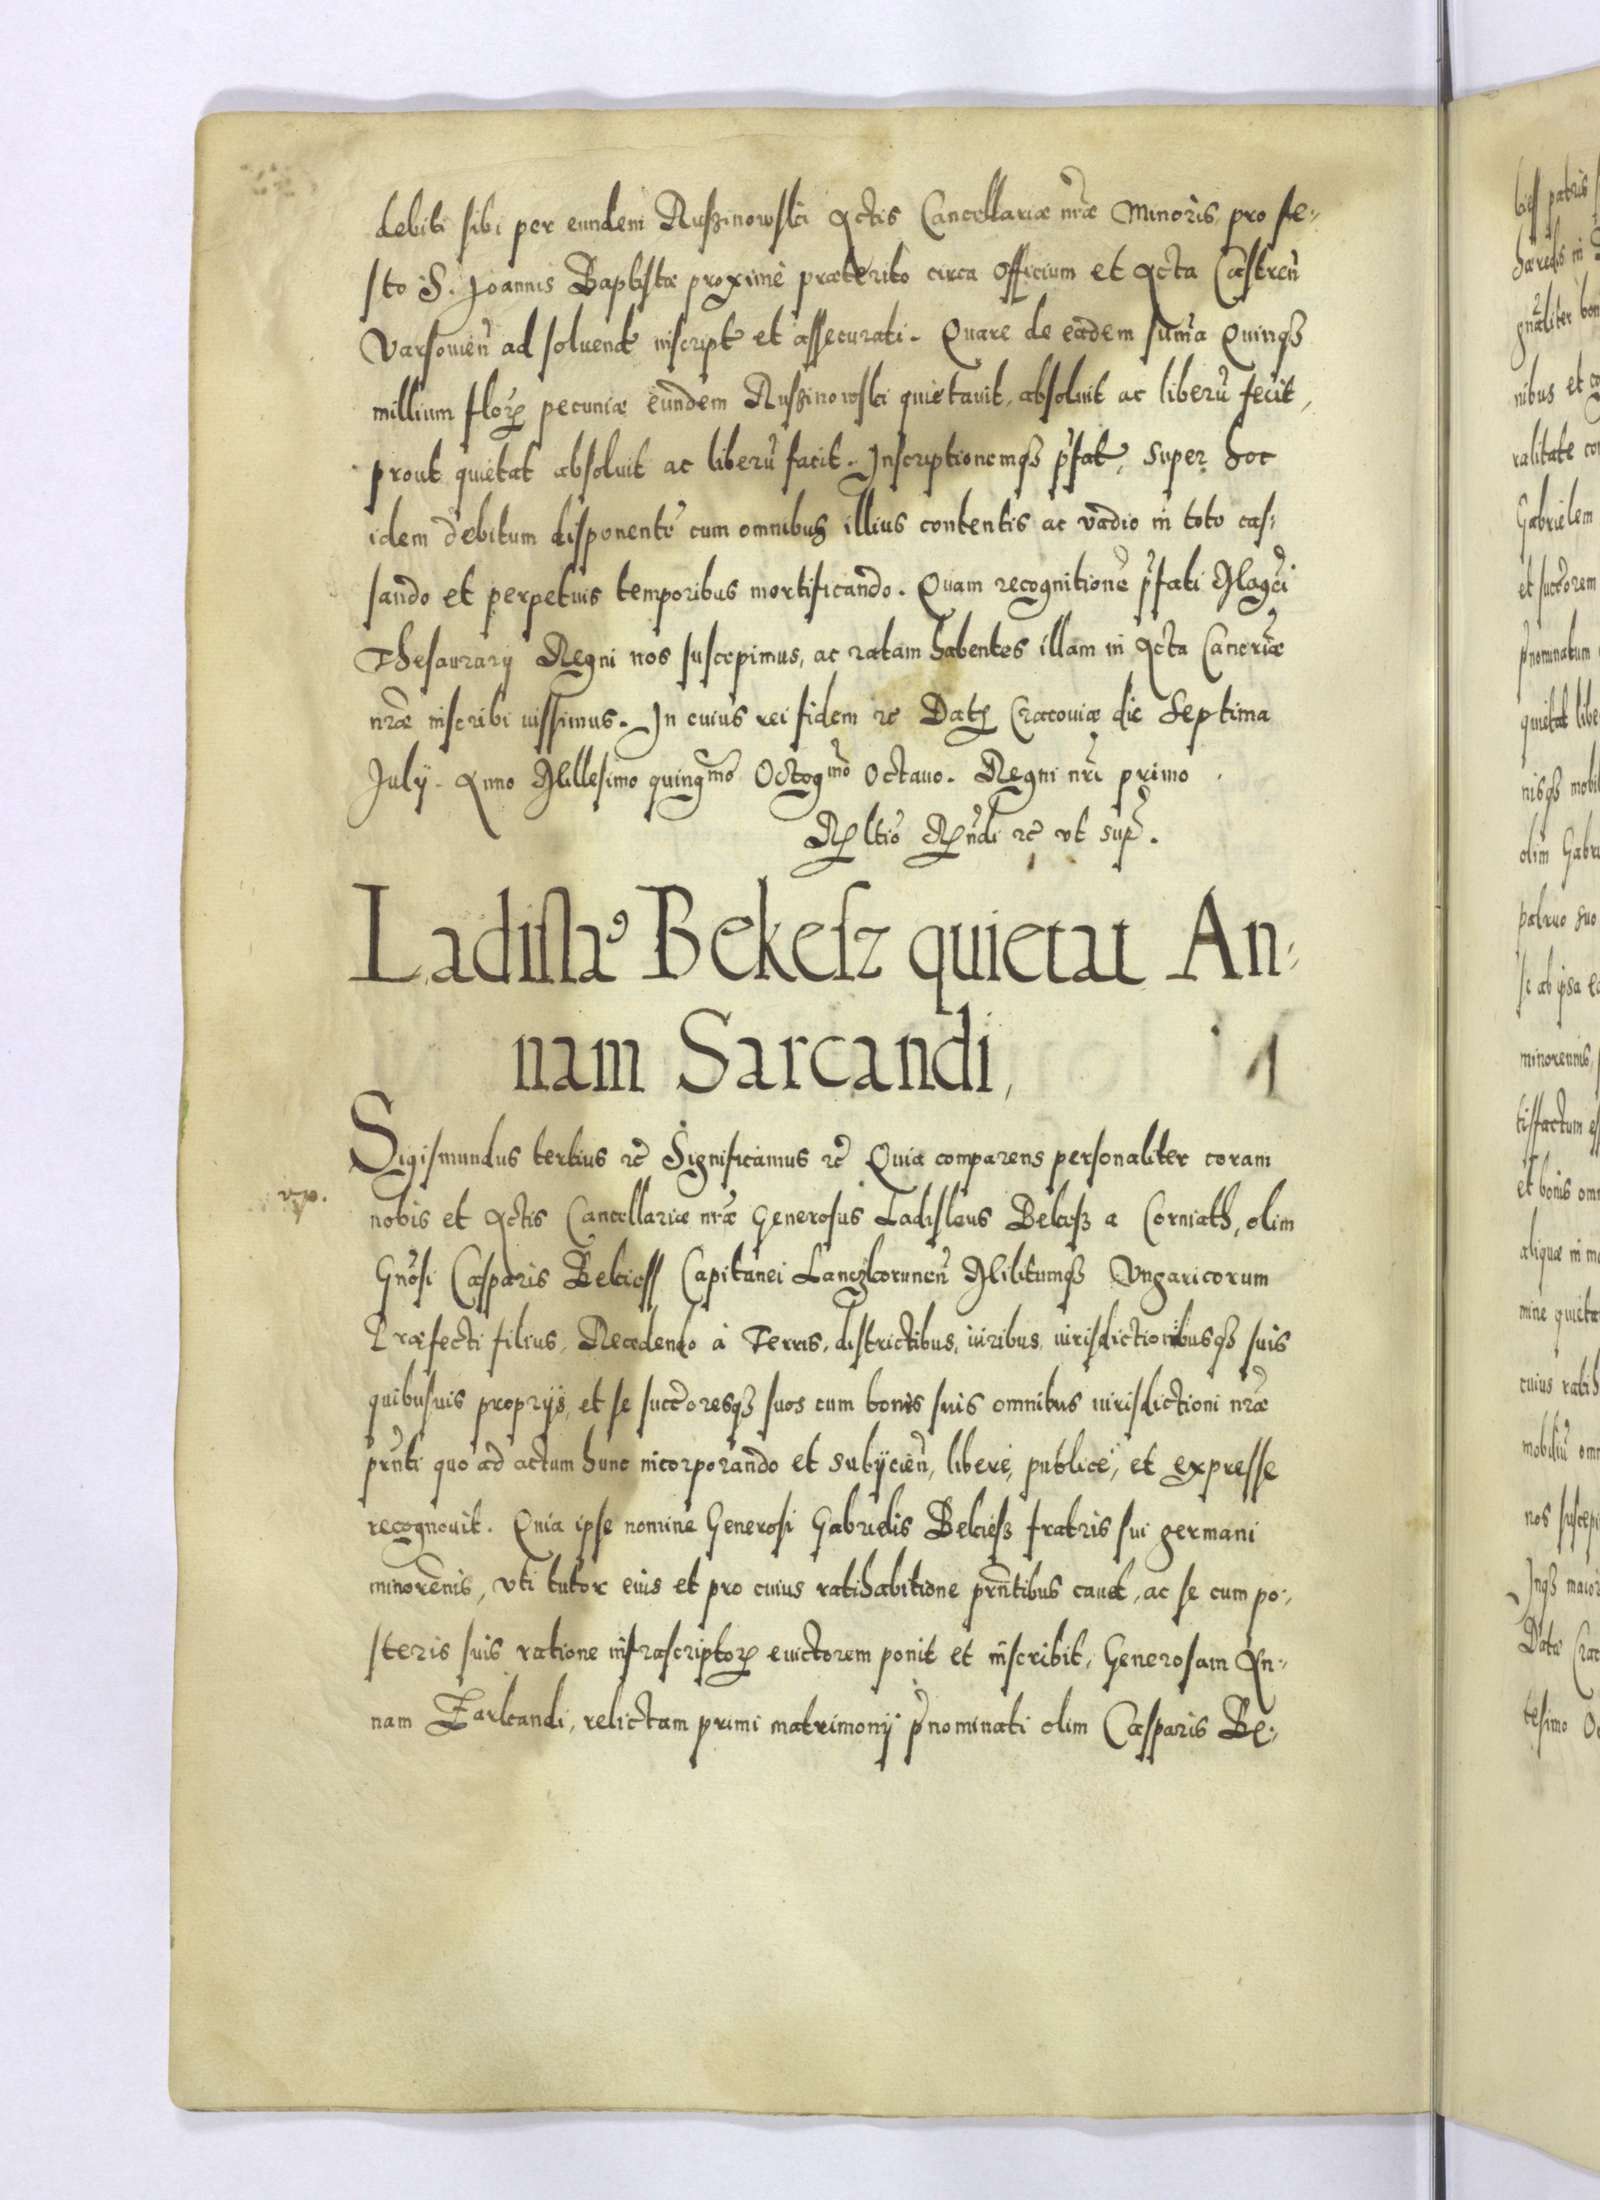 debiti sibi per eundem Ruszinowski Actis Cancellariæ nr̃æ Minoris, pro fe-
sto S. Joannis Baptistæ proximè præterito circa Officium et Acta Castren̄
Varsouien̄ ad soluend inscript et assecurati. Quare de eadem sum̄a Quinqȝ
millium floꝝ pecuniæ eundem Ruszinowski quietauit, absoluit ac liberū fecit,
prout quietat absoluit ac liberū facit. Inscriptionemqȝ p̄fat, super hoc
idem debitum disponente cum omnibus illius contentis ac vadio in toto cas-
sando et perpetuis temporibus mortificando. Quam recognitionē p̄fati Magc̄i
Thesaurarij Regni nos suscepimus, ac ratam habentes illam in Acta Cancr̄iæ
nr̃æ inscribi iussimus. In cuius rei fidem ꝛc Datꝭ Cracouiæ die Septima
Julij. Anno Millesimo quing̃mo Octog̃mo Octauo. Regni nr̃i primo.
Rꝑltio Rꝑndi ꝛc vt sup̃.
Ladislaꝰ Bekesz quietat An-
nam Sarcandi,
Sigismundus tertius ꝛc Significamus ꝛc Quia comparens personaliter coram
nobis et Actis Cancellariæ nr̃æ Generosus Ladislaus Bekiesz a Corniath, olim
Gn̄osi Casparis Bekiess Capitanei Lanczkorunen̄ Militumqȝ Vngaricorum
Præfecti filius, Recedendo à Terris, districtibus, iuribus, iurisdictionibusqȝ suis
quibusuis proprijs, et se succ̄oresqȝ suos cum bonis suis omnibus iurisdictioni nr̃æ
prn̄ti quo ad actum hunc incorporando et subijcien̄, liberè, publicè, et expresse
recognouit. Quia ipse nomine Generosi Gabrielis Bekiesz fratris sui germani
minorēnis, vti tutor eius et pro cuius ratihabitione prn̄tibus cauet, ac se cum po-
steris suis ratione infrascriptoꝝ euictorem ponit et inscribit, Generosam An-
nam Sarkandi, relictam primi matrimonij p̄nominati olim Casparis Be-